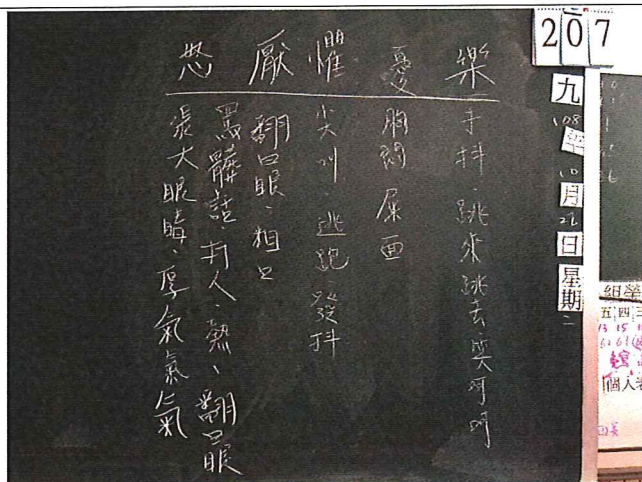 207
九年
108
10月22日星期二
樂
手抖、跳來跳去笑呵呵
憂
胸悶 屎面
懼
尖叫、逃跑、發抖
厭
翻白眼、粗口
怒
罵髒話、打人、熱、翻白眼
張大眼睛、厚氣氣氣
組榮
五四三
個人